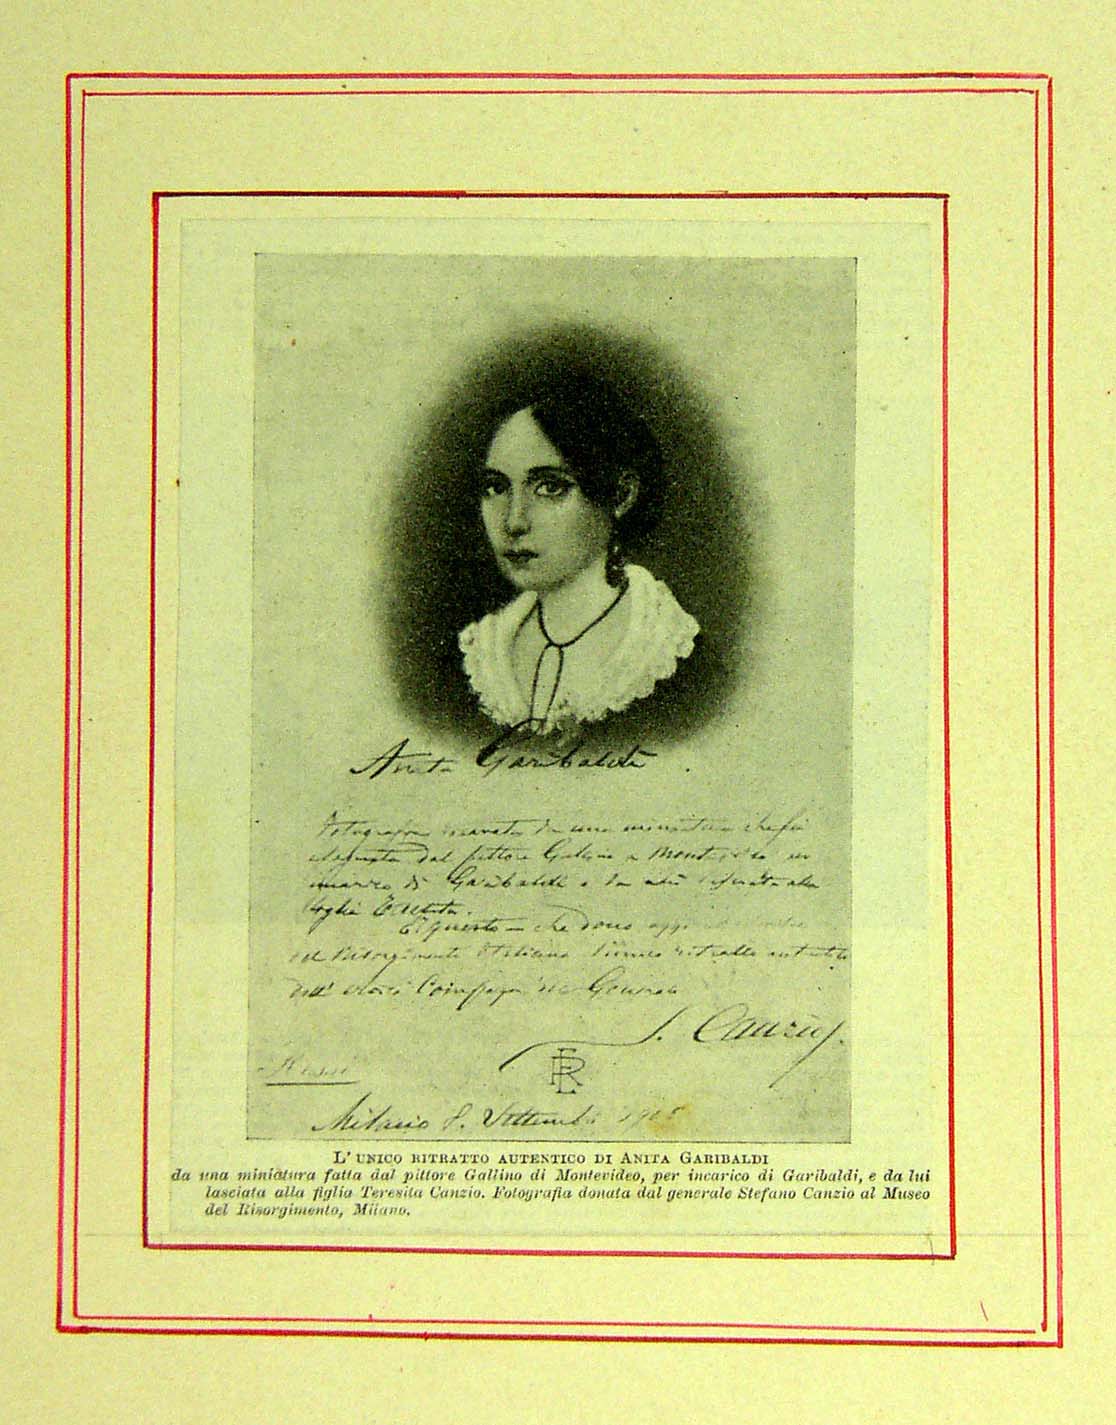 Anita Garibaldi.
Fotografia ricavata da una miniatura che fu
eseguita dal pittore Gallino a Montevideo per
incarico di Garibaldi e da lui alla
figlia
È questo che dono oggi
del Risorgimento Italiano l'unico ritratto autentico
dell' Compagna del Generale
S. Canzio.
ERL
Milano 8. Settembre 1905
L'UNICO RITRATTO AUTENTICO DI ANITA GARIBALDI
da una miniatura fatta dal pittore Gallino di Montevideo, per incarico di Garibaldi, e da lui
lasciata alla figlia Teresita Canzio. Fotografia donata dal generale Stefano Canzio al Museo
del Risorgimento, Milano.